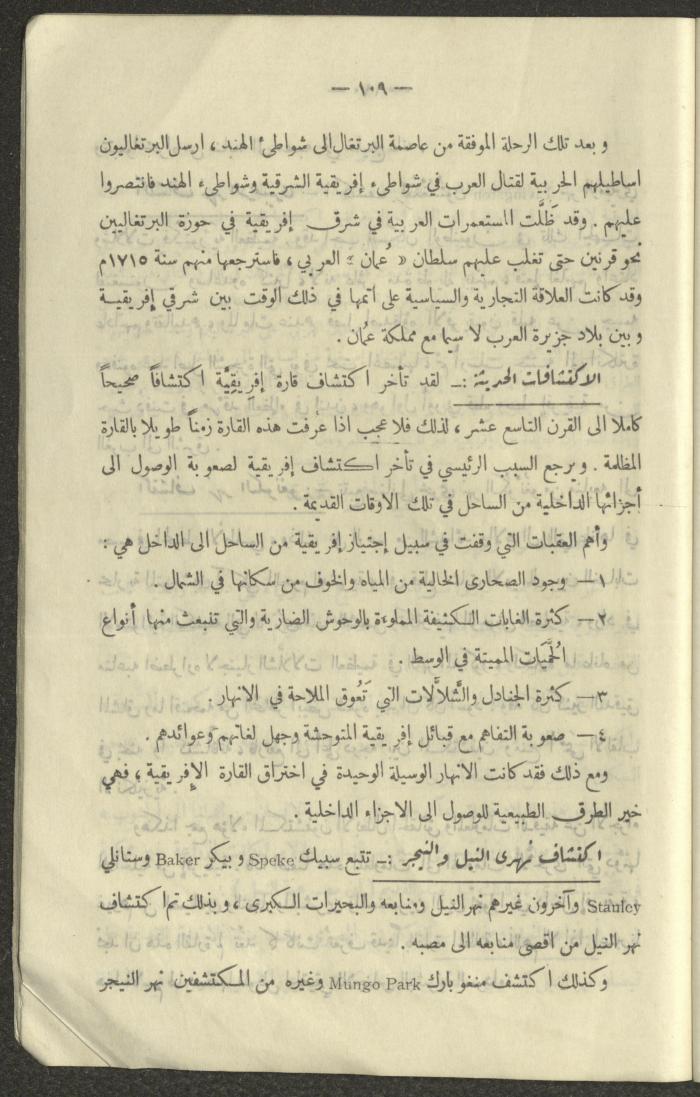 — ١٠٩ —
وبعد تلك الرحلة الموفقة من عاصمة البرتغال الى شواطئ الهند ، ارسل البرتغاليون
اساطيلهم الحربية لقتال العرب في شواطىء إفريقية الشرقية وشواطىء الهند فانتصروا
عليهم . وقد ظَلَّت المستعمرات العربية في شرق إفريقية في حوزة البرتغاليين
نحو قرنين حتى تغلب عليهم سلطان « عُمان » العربي ، فاسترجعها منهم سنة ١٧١٥م
وقد كانت العلاقة التجارية والسياسية على أتمها في ذلك الوقت بين شرقي إفريقيـة
وبين بلاد جزيرة العرب لا سيما مع مملكة عمُان .
الاكتشافات الحديثة :ـ لقد تأخر اكتشاف قارة إفريقِيَّة اكتشافاً صحيحاً
كاملا الى القرن التاسع عشر ، لذلك فلا عجب اذا عُرفت هذه القارة زمناً طويلا بالقارة
المظلمة . ويرجع السبب الرئيسي في تأخر اكتشاف إفريقية لصعوبة الوصول الى
أجزائها الداخلية من الساحل في تلك الاوقات القديمة .
وأهم العقبات التي وقفت في سبيل إجتياز إفريقية من الساحل الى الداخل هي :
١ — وجود الصحارى الخالية من المياه والخوف من سكانها في الشمال .
٢ — كثرة الغابات الكثيفة المملوءة بالوحوش الضارية والتي تنبعث منها أنواع
الحُمَّيات المميتة في الوسط .
٣ — كثرة الجنادل والشَّلالَّات التي تَعُوق الملاحة في الانهار .
٤ — صعوبة التفاهم مع قبائل إفريقية المتوحشة وجهل لغاتهم وعوائدهم .
ومع ذلك فقد كانت الانهار الوسيلة الوحيدة في اختراق القارة الإفريقية ، فهي
خير الطرق الطبيعية للوصول الى الاجزاء الداخلية .
اكتشاف نهري النيل والنيجر :ـ تتبع سبيك Speke وبيكر Baker وستانلي
Stanley وآخرون غيرهم نهر النيل ومنابعه والبحيرات الكبرى ، وبذلك تم اكتشاف
نهر النيل من اقصى منابعه الى مصبه .
وكذلك اكتشف منغو بارك Mungo Park وغيره من المكتشفين نهر النيجر